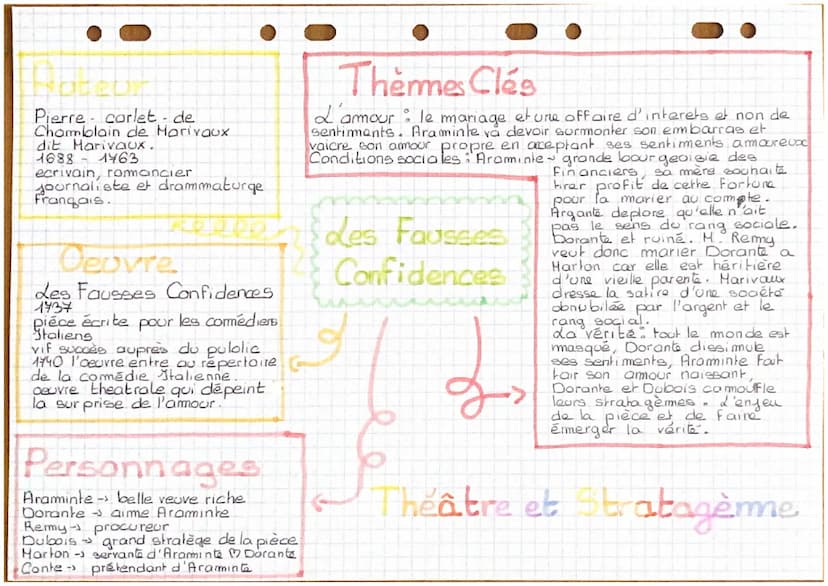 Auteur
Pierre - carlet - de
Chamblain de Marivaux
dit Marivaux.
1688 - 1763
ecrivain, romancier
journaliste et drammaturge
Français.
Thèmes Clés
L'amour : le mariage et une affaire d'interets et non de
sentiments. Araminte va devoir surmonter son embarras et
vaicre son amour propre en acceptant ses sentiments amoureux
Conditions sociales : Araminte → grande bourgeoisie des
financiers, sa mère souhaite
tirer profit de cette fortune
pour la marier au compte.
Argante deplore qu'elle n'ait
pas le sens du rang sociale.
Dorante et ruiné. M. Remy
veut donc marier Dorante a
Marton car elle est héritière
d'une vieille parente. Marivaux
dresse la satire d'une société
obnubilée par l'argent et le
rang social.
La vérité : tout le monde est
masqué, Dorante dissimule
ses sentiments, Araminte fait
tair son amour naissant,
Dorante et Dubois camouffle
leurs stratagèmes. L'enjeu
de la pièce et de faire
émerger la vérité.
Les Fausses
Confidences
Oeuvre
Les Fausses Confidences
1737
pièce écrite pour les comédiens
Italiens
vif succès auprès du public
1740 l'oeuvre entre au répertoire
de la comédie Italienne.
oeuvre theatrale qui dépeint
la surprise de l'amour.
Personnages
Araminte → belle veuve riche
Dorante → aime Araminte
Remy → procureur
Dubois → grand stratège de la pièce
Marton → servante d'Araminte ♡ Dorante
Conte → prétendant d'Araminte
Théâtre et Stratagème